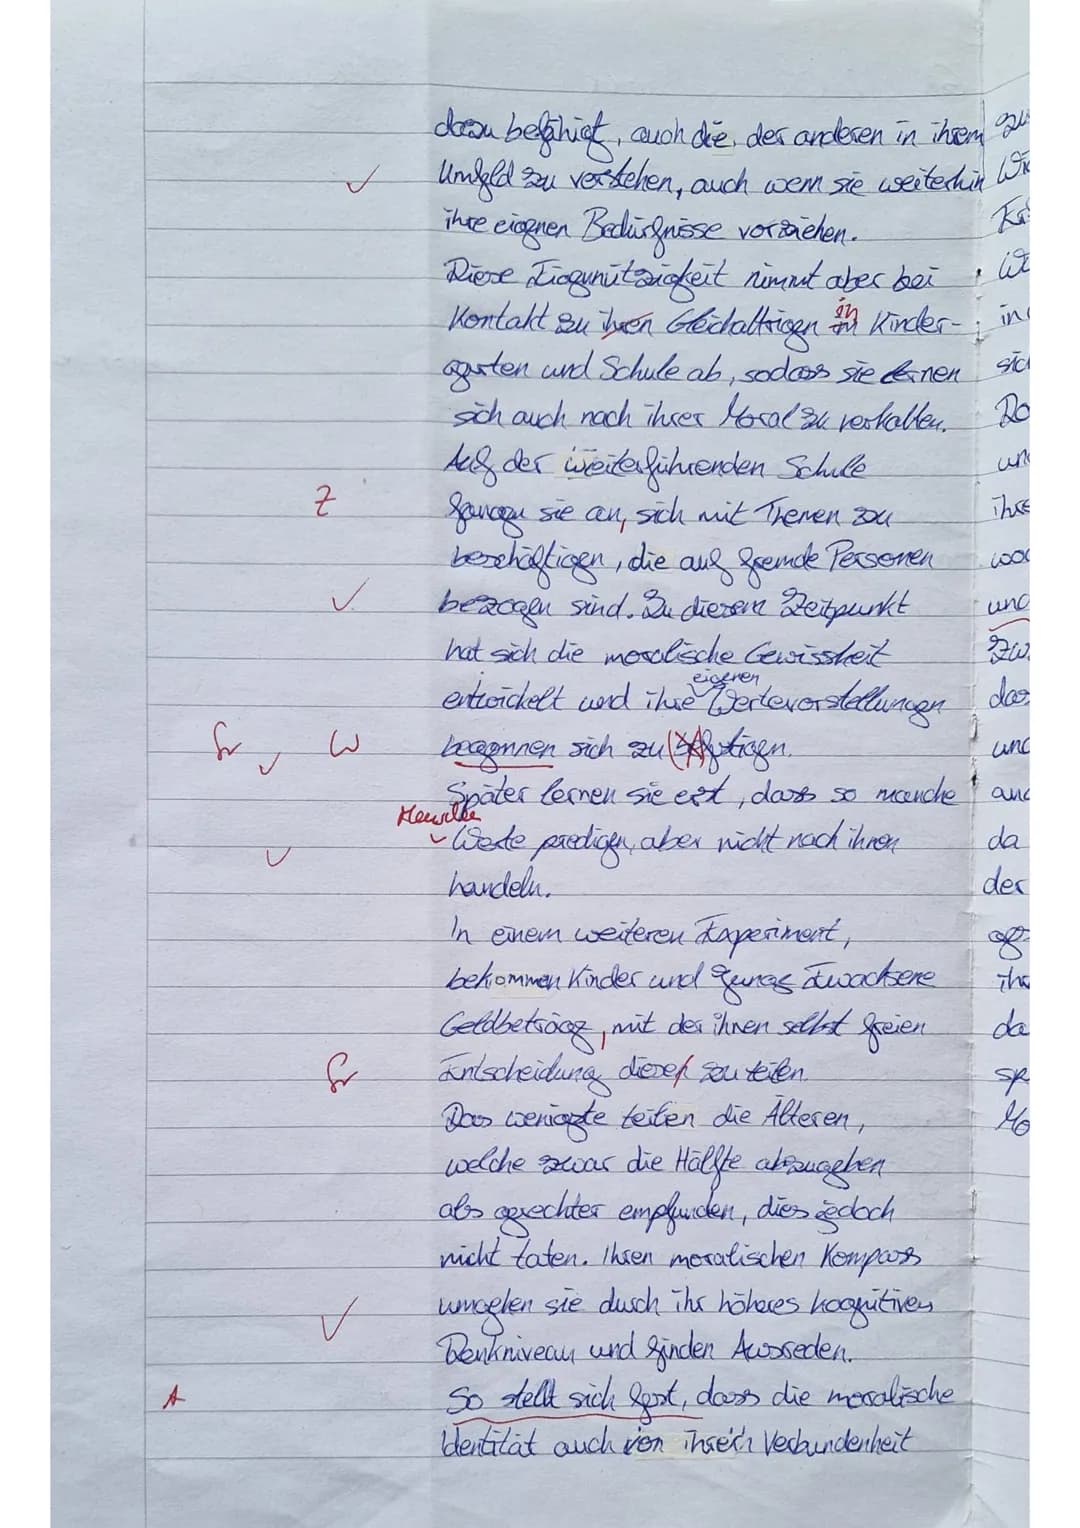 dazu befähigt, auch die, der anderen in ihrem
Umfeld zu verstehen, auch wenn sie weiterhin
ihre eigenen Bedürfnisse vorziehen.
Diese Eigennützigkeit nimmt aber bei
Kontakt zu ihren Gleichaltrigen in Kinder-
garten und Schule ab, sodass sie lernen
sich auch nach ihrer Moral zu verhalten.
Auf der weiterführenden Schule
Z fangen sie an, sich mit Themen zu
beschäftigen, die auf fremde Personen
bezogen sind. Zu diesem Zeitpunkt
hat sich die moralische Gewissheit
eigenen
entwickelt und ihre Wertevorstellungen
Gr W beginnen sich zu festigen.
Später lernen sie erst, dass so manche
Menschen
Werte predigen, aber nicht nach ihnen
handeln.
In einem weiteren Experiment,
bekommen Kinder und junge Erwachsene
Geldbeträge, mit der ihnen selbst freien
Gr Entscheidung diesen zu teilen.
Das wenigste teilen die Älteren,
welche zwar die Hälfte abzugeben
als gerechter empfunden, dies jedoch
nicht taten. Ihren moralischen Kompass
umgehen sie durch ihr höheres kognitives
Denkniveau und finden Ausreden.
A So stellt sich fest, dass die moralische
Identität auch von ihrer Verbundenheit